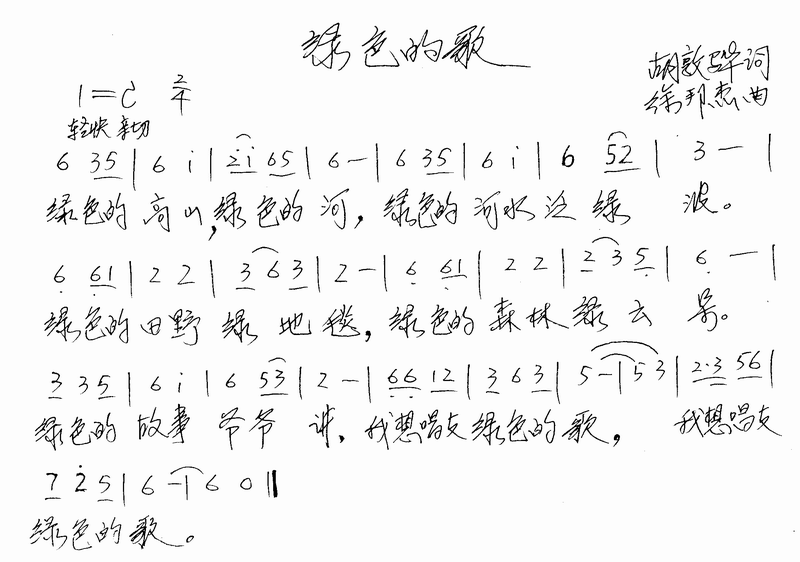 绿色的歌
胡敦骅词
1=C 2/4
徐邦杰曲
轻快 亲切
6 35 | 6 i | 2i 65 | 6 - | 6 35 | 6 i | 6 52 | 3 - |
绿色的高山,绿色的河,绿色的河水泛绿波。
6 61 | 2 2 | 3 6 3 | 2 - | 6 61 | 2 2 | 2 3 5 | 6 - |
绿色的田野绿地毯,绿色的森林绿云朵。
3 3 5 | 6 i | 6 53 | 2 - | 66 12 | 3 6 3 | 5 - | 5 3 | 2·3 56 |
绿色的故事爷爷讲,我想唱支绿色的歌,我想唱支
7 2 5 | 6 - | 6 0 ‖
绿色的歌。